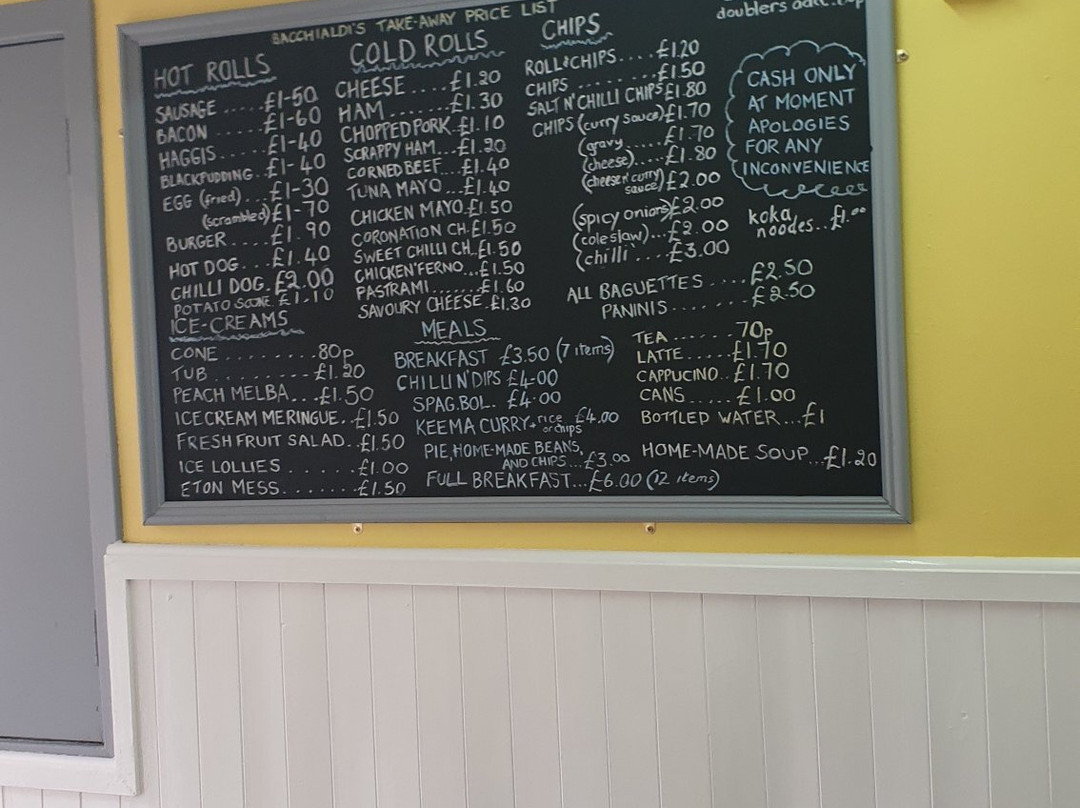 BACCHIALDI'S TAKE-AWAY PRICE LIST
HOT ROLLS
SAUSAGE.....£1-50
BACON......£1-60
HAGGIS.....£1-40
BLACKPUDDING.£1-40
EGG (fried)...£1-30
(scrambled)£1-70
BURGER....£1.90
HOT DOG...£1.40
CHILLI DOG.£2.00
POTATO SCONE.£1.10
ICE-CREAMS
CONE.........80p
TUB.........£1.20
PEACH MELBA...£1.50
ICE CREAM MERINGUE.£1.50
FRESH FRUIT SALAD..£1.50
ICE LOLLIES......£1.00
ETON MESS.......£1.50
COLD ROLLS
CHEESE....£1.20
HAM.......£1.30
CHOPPED PORK.£1.10
SCRAPPY HAM..£1.20
CORNED BEEF...£1.40
TUNA MAYO...£1.40
CHICKEN MAYO.£1.50
CORONATION CH.£1.50
SWEET CHILLI CH.£1.50
CHICKEN'FERNO...£1.50
PASTRAMI.......£1.60
SAVOURY CHEESE.£1.30
MEALS
BREAKFAST £3.50 (7 items)
CHILLI N' DIPS £4-00
SPAG.BOL. £4.00
KEEMA CURRY+rice or chips £4.00
PIE, HOME-MADE BEANS,
AND CHIPS...£3.00
FULL BREAKFAST...£6.00 (12 items)
CHIPS
ROLL&CHIPS....£1.20
CHIPS.......£1.50
SALT N' CHILLI CHIPS£1.80
CHIPS (curry sauce)£1.70
(gravy.....£1.70
(cheese)....£1.80
(cheese n' curry
sauce)£2.00
(spicy onions)£2.00
(coleslaw)...£2.00
(chilli....£3.00
ALL BAGUETTES....£2.50
PANINIS......£2.50
TEA.......70p
LATTE.....£1.70
CAPPUCINO..£1.70
CANS.....£1.00
BOTTLED WATER...£1
HOME-MADE SOUP...£1.20
doublers
CASH ONLY
AT MOMENT
APOLOGIES
FOR ANY
INCONVENIENCE
koka
noodes...£1.00